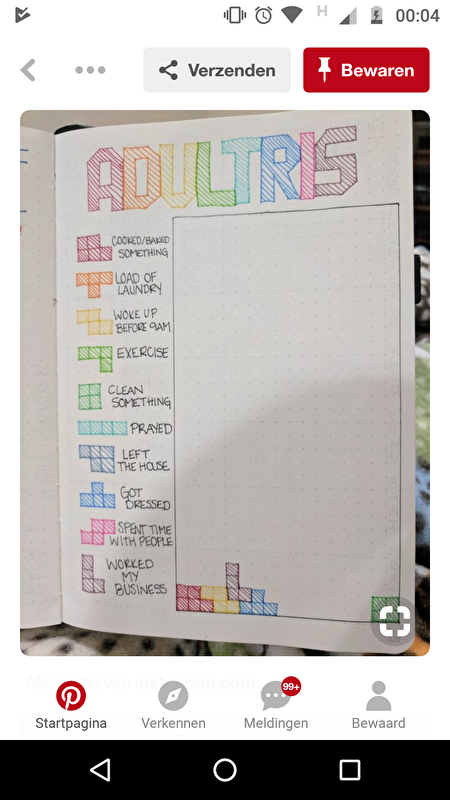 H
00:04
Verzenden
Bewaren
ADULTRIS
COOKED/BAKED
SOMETHING
LOAD OF
LAUNDRY
WOKE UP
BEFORE 9AM
EXERCISE
CLEAN
SOMETHING
PRAYED
LEFT
THE HOUSE
GOT
DRESSED
SPENT TIME
WITH PEOPLE
WORKED
MY
BUSINESS
99+
Startpagina
Verkennen
Meldingen
Bewaard